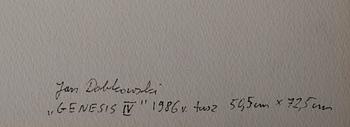 Jan Dobkowski
„GENESIS IV" 1986 r. tusz 51,5 cm × 72,5 cm